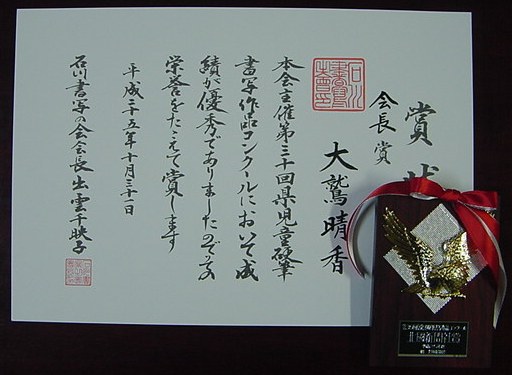 賞
会長賞
大鷲晴香
本会主催第三十回県児童硬筆
書写作品コンクールにおいて成
績が優秀でありましたのでその
栄誉をたたえて賞します
平成二十五年十月三十一日
石川書写の会会長出雲千映子